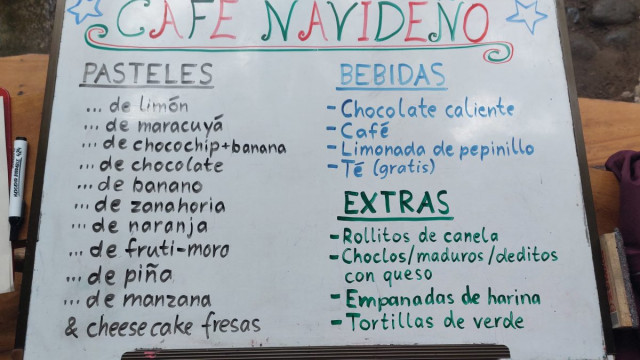 CAFÉ NAVIDEÑO
PASTELES
... de limón
... de maracuyá
... de chocochip+banana
... de chocolate
... de banano
... de zanahoria
... de naranja
... de fruti-moro
... de piña
... de manzana
& cheesecake fresas
BEBIDAS
- Chocolate caliente
- Café
- Limonada de pepinillo
- Té (gratis)
EXTRAS
- Rollitos de canela
- Choclos/maduros/deditos
con queso
- Empanadas de harina
- Tortillas de verde